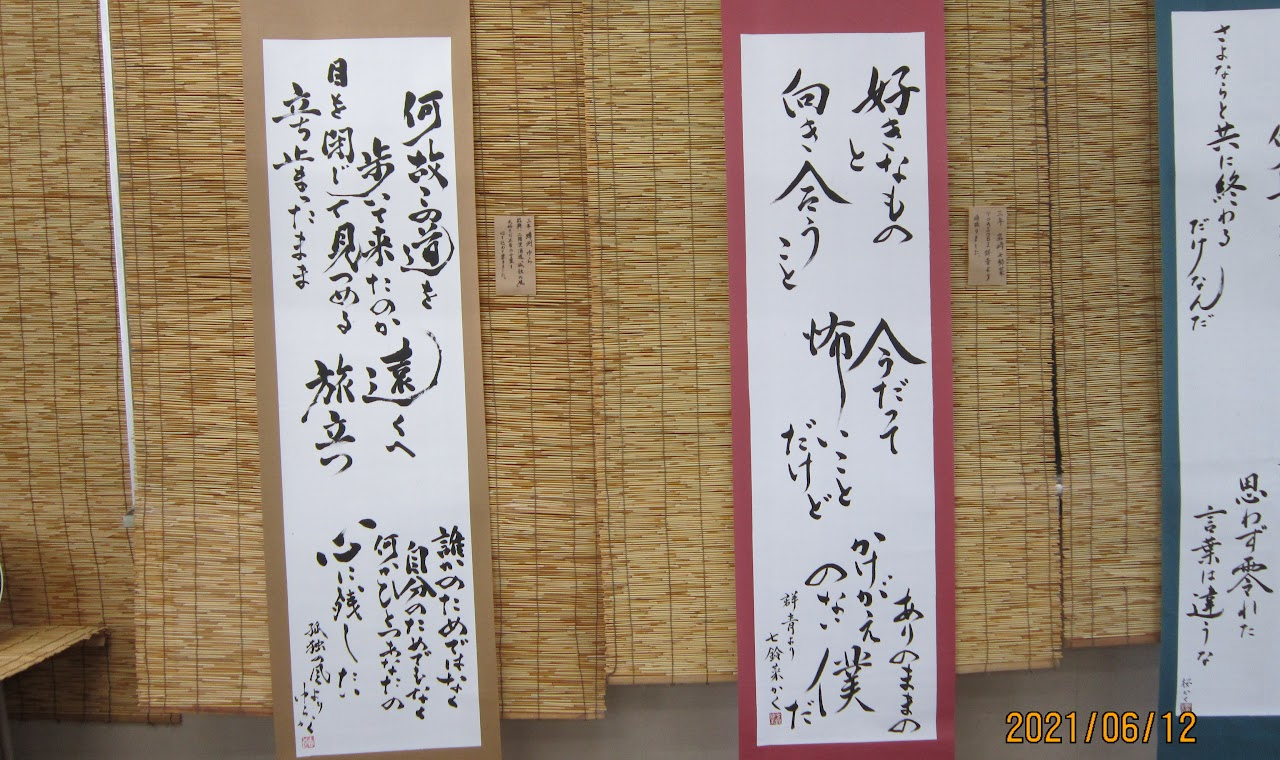 何故この道を
歩いて来たのか
目を閉じて見つめる
立ち止まったまま
遠くへ
旅立つ
誰かのためではなく
自分のためでもなく
何かひとつあなたの
心に残したい
孤独の風より
好きなもの
と
向き合うこと
今だって
怖いこと
だけど
ありのままの
かけがえ
のない僕だ
群青より
七鈴菜かく
さよならと共に終わる
だけなんだ
思わず零れた
言葉は違うな
2021/06/12